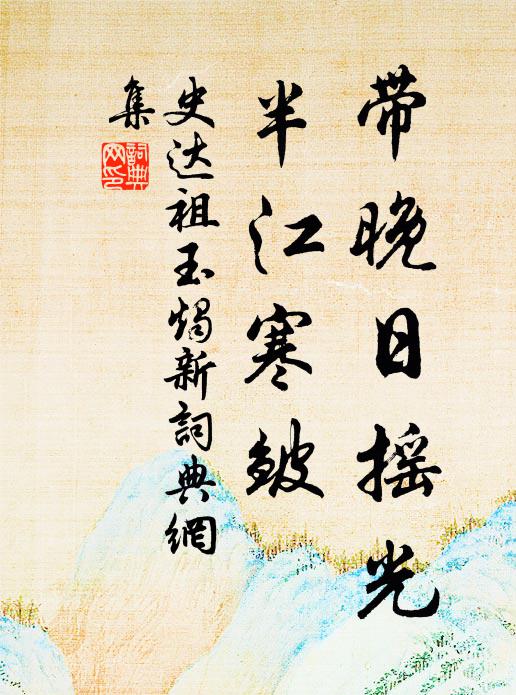 带晚日摇光
半江寒皱
史达祖玉烛新詞典網
集
詞典网印